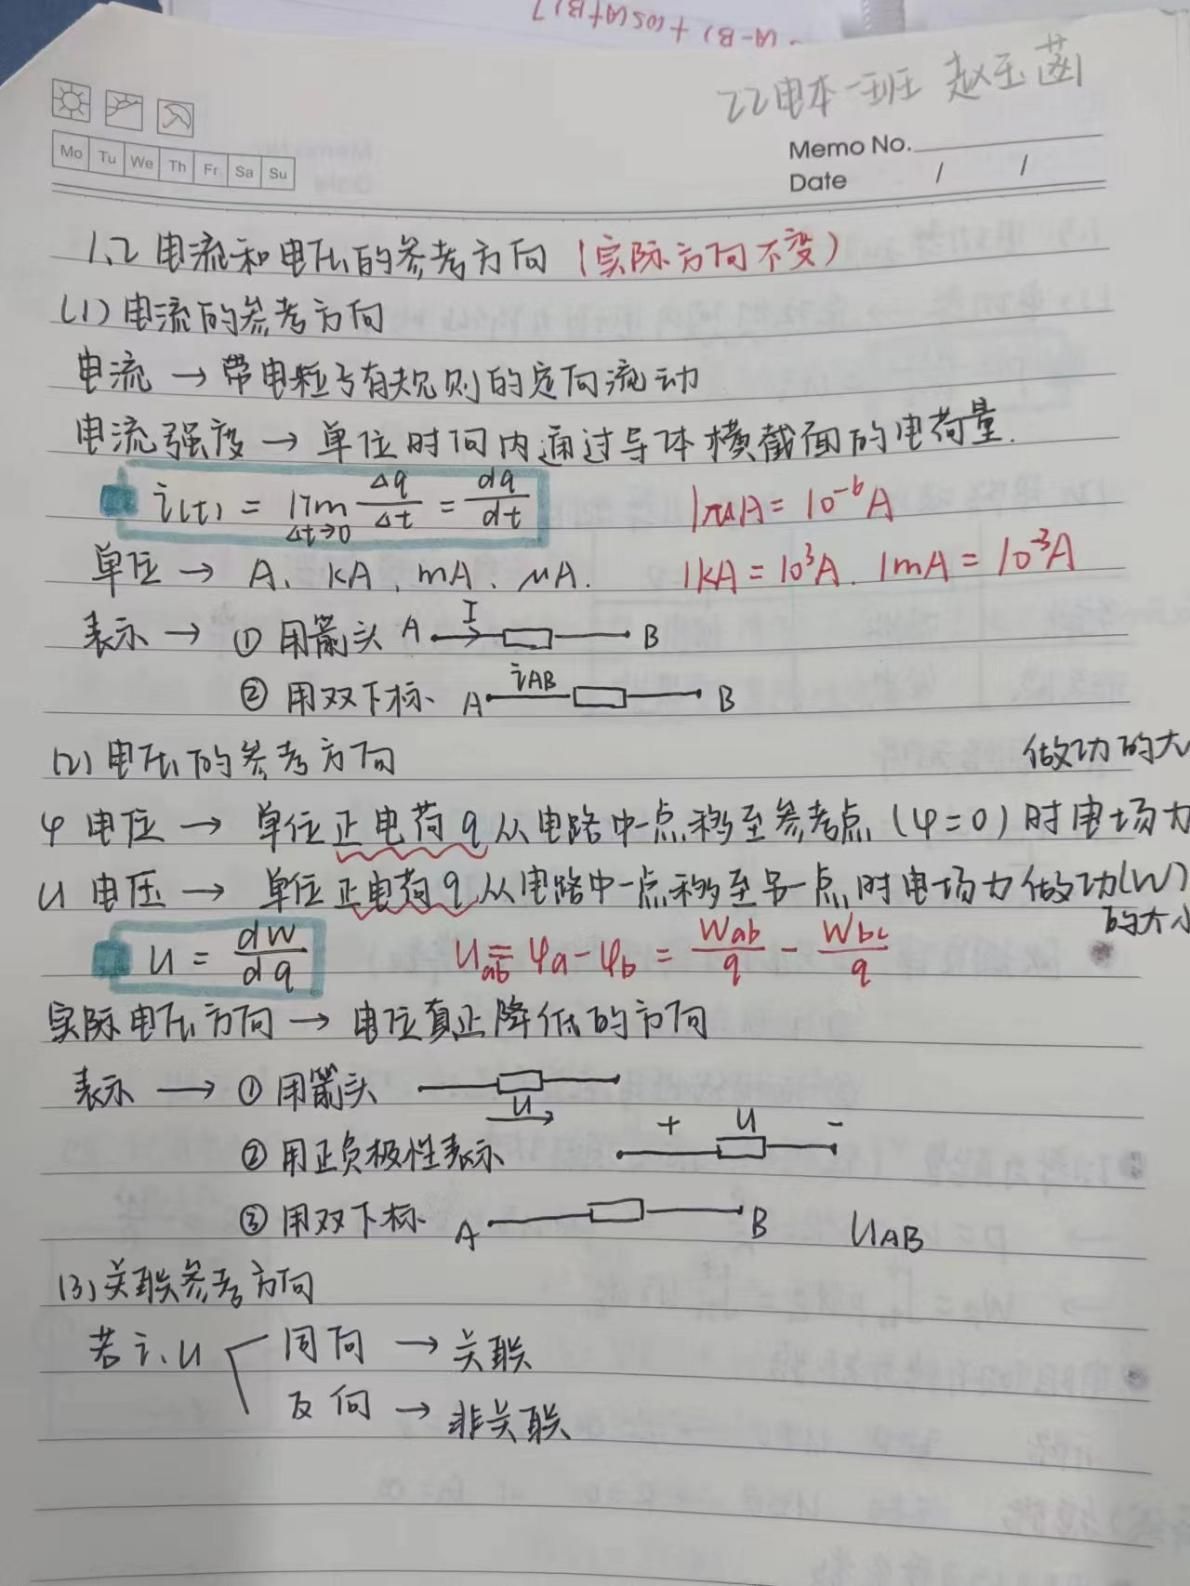 22电本一班 赵玉菡
Mo Tu We Th Fr Sa Su
Memo No.
Date / /
1.2 电流和电压的参考方向（实际方向不变）
(1) 电流的参考方向
电流 → 带电粒子有规则的定向流动
电流强度 → 单位时间内通过导体横截面的电荷量.
i(t) = lim Δt→0 Δq/Δt = dq/dt 1μA = 10⁻⁶A
单位 → A、kA、mA、μA. 1kA = 10³A. 1mA = 10⁻³A
表示 → ① 用箭头 A I B
② 用双下标 A iAB B
(2) 电压的参考方向
φ 电位 → 单位正电荷q从电路中一点移至参考点（φ=0）时电场力做功的大
u 电压 → 单位正电荷q从电路中一点移至另一点时电场力做功(W)的大小
u = dw/dq Uab = φa - φb = Wab/q - Wbc/q
实际电压方向 → 电位真正降低的方向
表示 → ① 用箭头 u
② 用正负极性表示 + u -
③ 用双下标 A B UAB
(3) 关联参考方向
若 i、u 同向 → 关联
反向 → 非关联